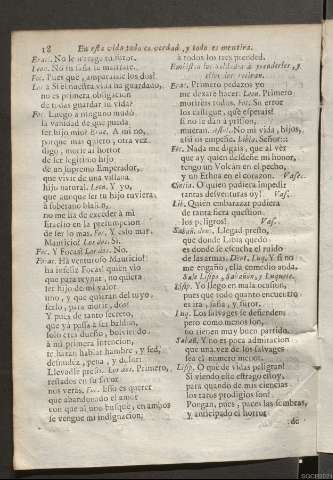 18 En esta vida todo es verdad, y todo es mentira.
Erac. No le
Leon. No su saña le maltrate.
Foc. Pues què, amparaisle los dos?
Los 2. Si èl nuestra vida ha guardado,
no es primera obligacion
de todas guardar su vida?
Foc. Luego à ninguno mudò
la vanidad de que pueda
ser hijo mio? Erac. A mi no,
porque mas quiero, otra vez
digo, morir al honor
de ser legitimo hijo
de un supremo Emperador,
que vivir de una villana
hijo natural. Leon. Y yo,
que aunque ser tu hijo tuviera
à soberano blason,
no me ha de exceder à mi
Eraclio en la presumpcion
de ser lo mas. Foc. Y es lo mas
Mauricio? Los dos. Si.
Foc. Y Focas? Los dos. No.
Foc. Ha venturoso Mauricio!
ha infeliz Focas! quien viò
que para reynar, no quiera
ser hijo de mi valor
uno, y que quieran del tuyo
serlo, para morir, dos!
Y pues de tanto secreto,
que ya passa à ser baldon,
solo eres dueño, bolviendo
à mi primera intencion,
te haràn hablar hambre, y sed,
desnudez, pena, y dolor.
Llevadle preso. Los dos. Primero,
restados en su favor
nos veràs. Foc. Esso es querer
que abandonado el amor
con que al uno busquè, en ambos
se vengue mi indignacion:
à todos los tres prended.
Embisten los soldados à prenderlos, y
ellos se retiran.
Erac. Primero pedazos yo
me dexarè hacer. Leon. Primero
morirèis todos. Foc. Su error
los castigue, què esperais?
si no se dàn à prision,
mueran. Astol. No mi vida, hijos,
assi os empeñe. Libia. Señor::-
Foc. Nada me digais, que al vèr
que ay quien desdeñe mi honor,
tengo un Volcàn en el pecho,
y un Ethna en el corazon. Vase.
Cintia. O quien pudiera impedir
tantas desventuras oy! Vas.
Lib. Quièn embarazar pudiera
de tanta fiera question
los peligros! Vas.
Sabañ. dent. Llegad presto,
que donde Libia quedò
es donde se escucha el ruido
de las armas. Dent. Luq. Y si no
me engaño, ella comedia anda.
Sale Lisipo, Sabañon, y Luquete.
Lisip. Yo llego en mala ocasion,
pues que todo quanto encuentro
es ira, saña, y furor.
Luq. Los salvages se defienden,
pero como menos son,
no tienen muy buen partido.
Sabañ. Y no es poca admiracion
que una vez de los salvages
sea el numero menor.
Lisip. O què de vidas peligran!
Si viendo este estrago estoy,
para quando de mis ciencias
los raros prodigios son?
Pongan, pues, paces las sombras,
y anticipado el horror
de